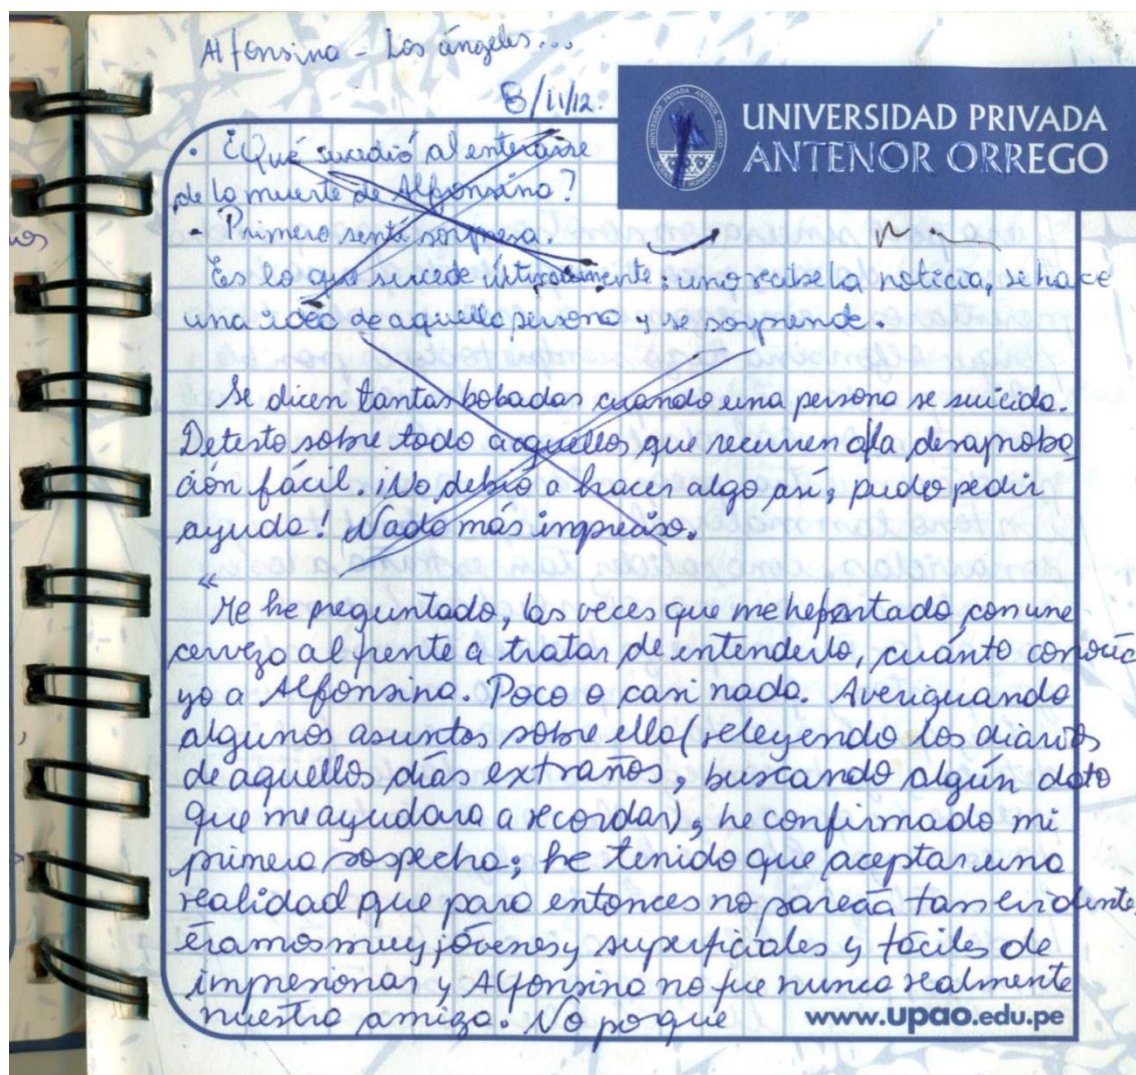 Alfonsina - Los ángeles...
8/11/12.
UNIVERSIDAD PRIVADA
ANTENOR ORREGO
· ¿Qué sucedió al enterarse
de la muerte de Alfonsina?
- Primero sentí sorpresa.
Es lo que sucede últimamente: uno recibe la noticia, se hace
una idea de aquella persona y se sorprende.
Se dicen tantas bobadas cuando una persona se suicida.
Detesto sobre todo a aquellos que recurren a la desaproba
ción fácil. ¡No debió a hacer algo así, pudo pedir
ayuda! Nada más impreciso.
"Me he preguntado, las veces que me he sentado con una
cerveza al frente a tratar de entenderlo, cuánto conocía
yo a Alfonsina. Poco o casi nada. Averiguando
algunos asuntos sobre ella (releyendo los diarios
de aquellos días extraños, buscando algún dato
que me ayudara a recordar), he confirmado mi
primera sospecha; he tenido que aceptar una
realidad que para entonces no parecía tan evidente:
éramos muy jóvenes y superficiales y fáciles de
impresionar y Alfonsina no fue nunca realmente
nuestra amiga. No porque
www.upao.edu.pe